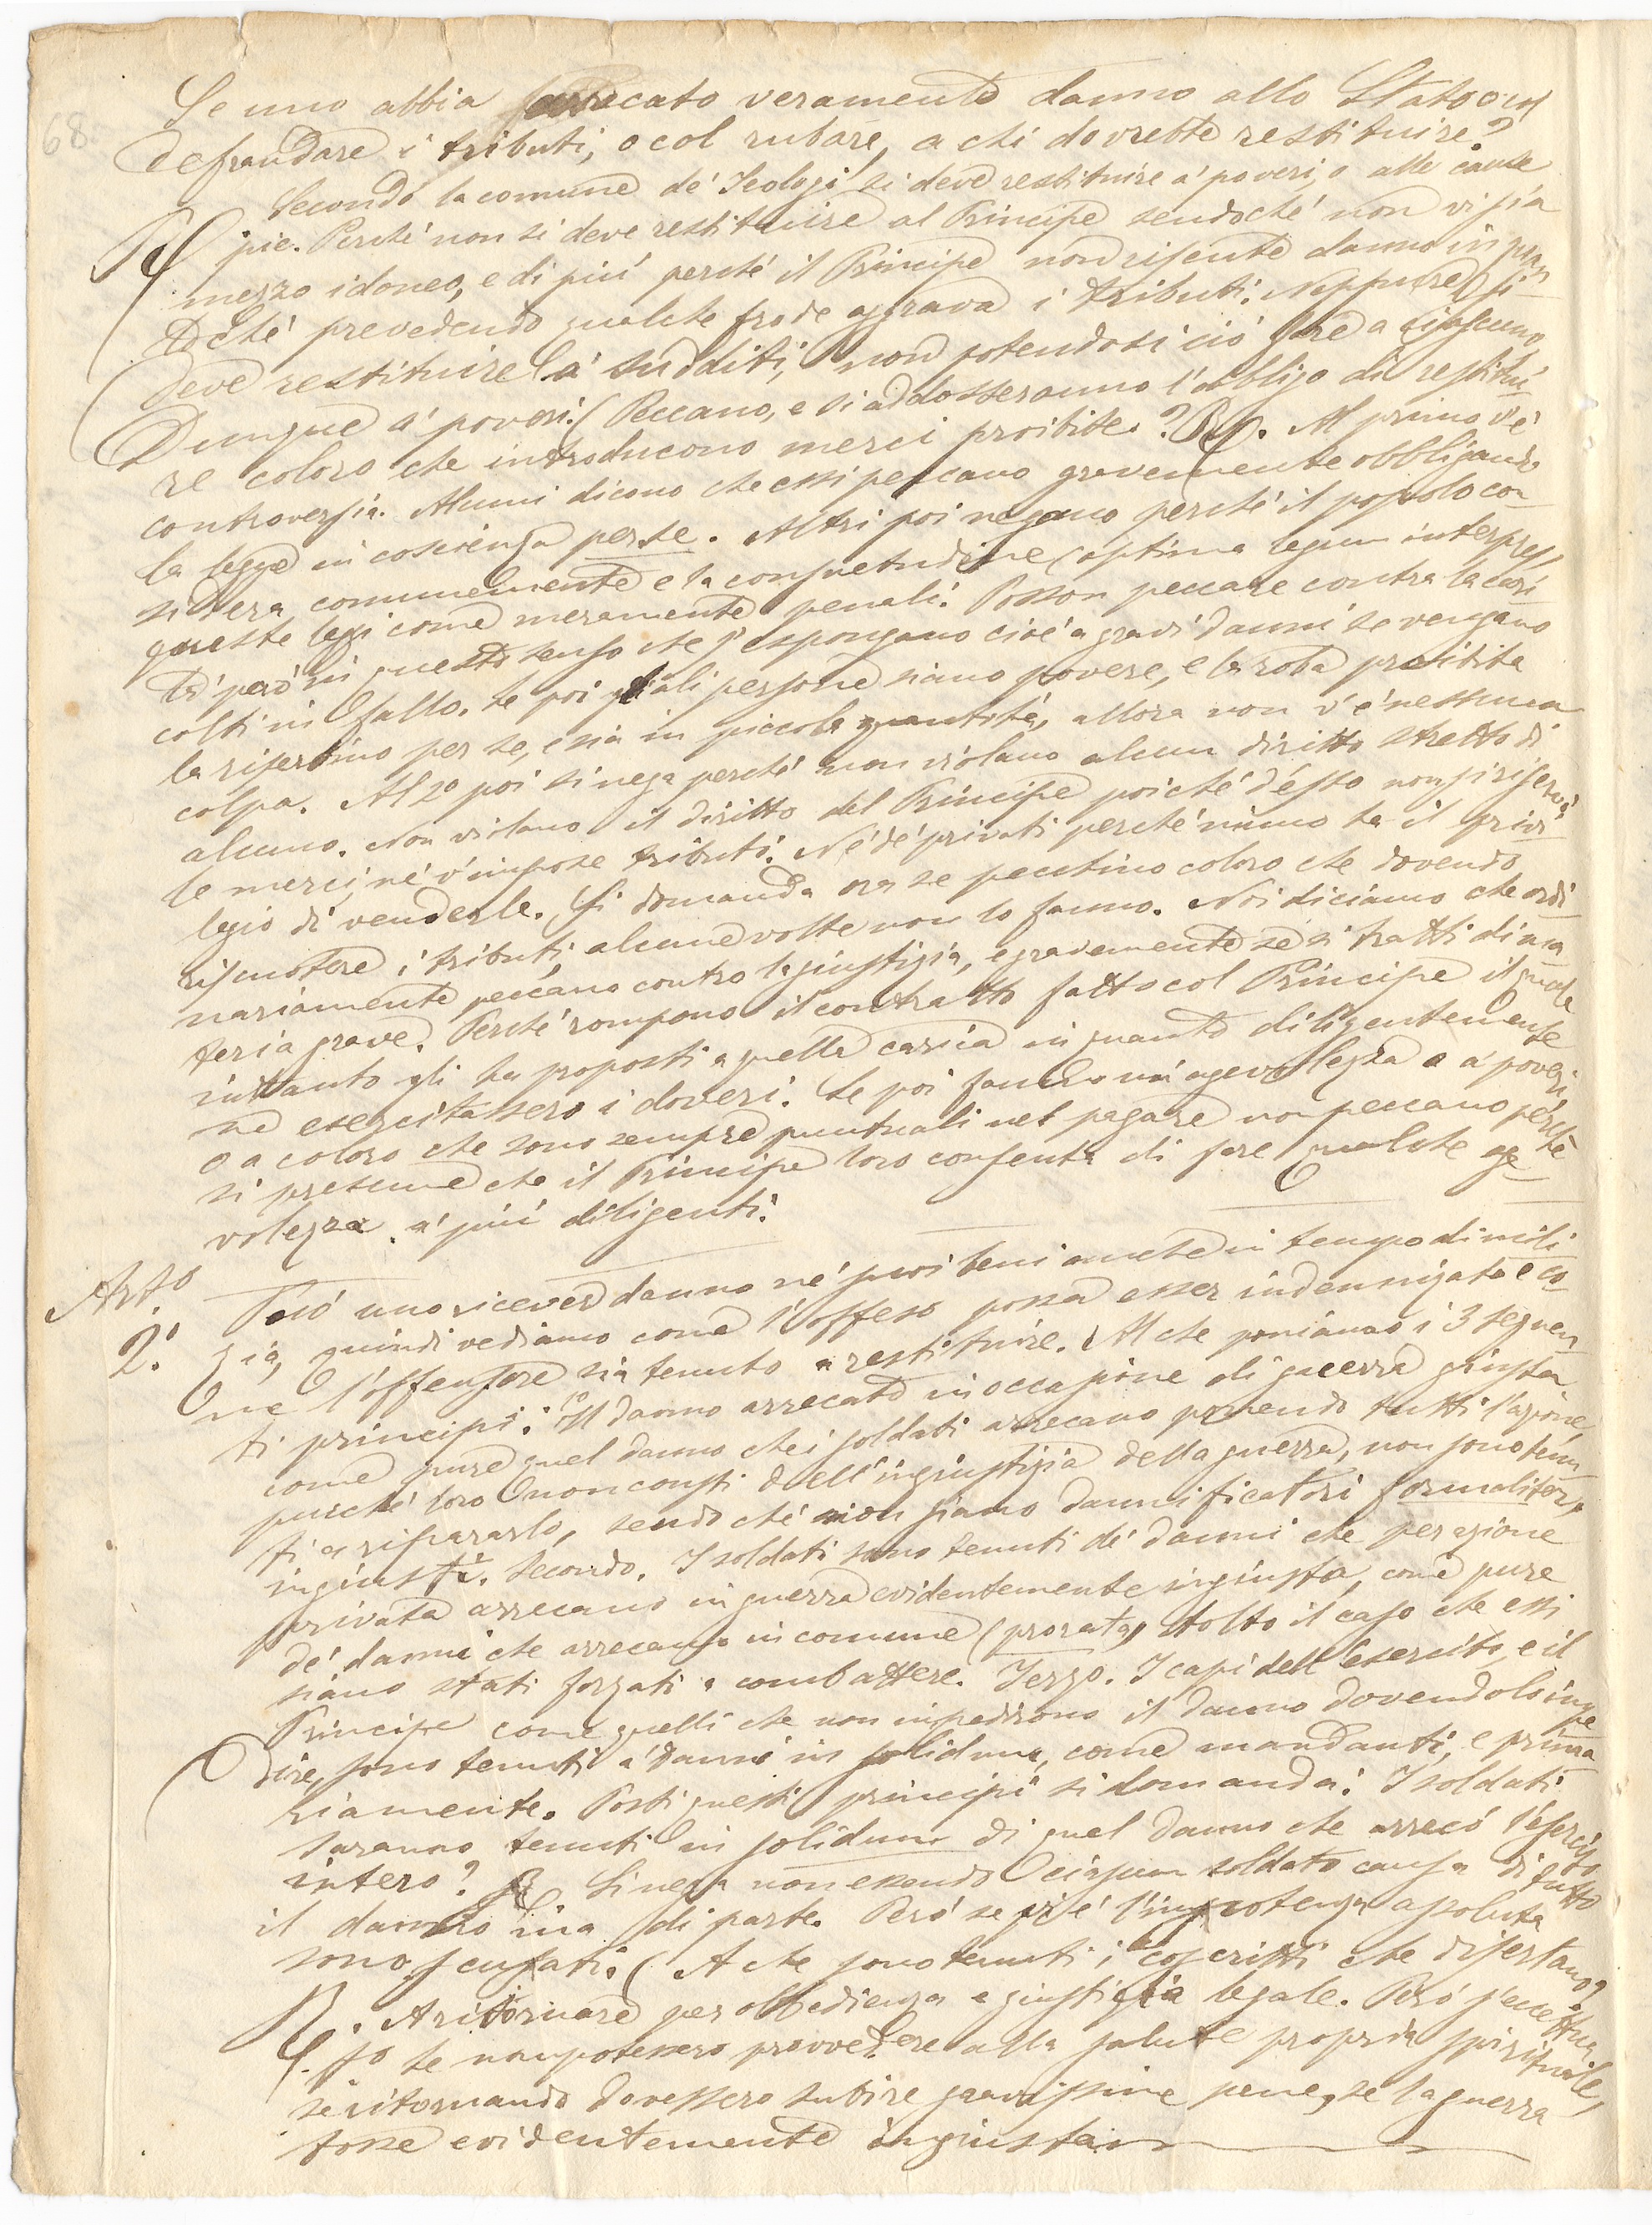 68
Se uno abbia arrecato veramente danno allo Stato o col
defraudare i tributi, o col rubare, a chi dovrebbe restituire?
Secondo la comune de' Teologi si deve restituire a' poveri, o alle cause
R pie. Perché non si deve restituire al Principe sendoché non vi sia
mezzo idoneo, e di più perché il Principe non risente danno in quan
to ché prevedendo qualche frode aggrava i tributi. Neppure si
deve restituire a' sudditi, non potendosi ció fare a ciascuno,
Dunque a' poveri. (Peccano, e si addosseranno l'obbligo di restitui
re coloro che introducono merci proibite? R. Al primo v'é
controversia. Alcuni dicono che essi peccano gravemente obbligando
la legge in coscienza per se. Altri poi negano perché il popolo con
sidera comunemente e la consuetudine (optima legum interpres)
queste leggi come meramente penali. Posson peccare contra la cari
tá però in questo senso che s'espongano cioé a gravi danni se vengano
colti in fallo. Se poi tali persone siano povere, e la roba proibita
la riserbino per se, e sia in piccola quantitá, allora non v'é nessuna
colpa. Al 2º poi si nega perché non violano alcun diritto stretto di
alcuno. Non violano il diritto del Principe poiché d'esso non si riservó
le merci, né v'impose tributi. Né de' privati perché niuno ha il privi
legio di venderle. Si domanda ora se pecchino coloro che dovendo
riscuotere i tributi alcune volte non lo fanno. Noi diciamo che ordi
nariamente peccano contro la giustizia, e gravemente se si tratti di ma
teria grave. Perché rompono il contratto fatto col Principe il quale
intanto gli ha proposti a quella carica in quanto diligentemente
ne esercitassero i doveri. Se poi fanno un' agevolezza o a' poveri,
o a coloro che sono sempre puntuali nel pagare non peccano perché
si presume che il Principe loro consenta di fare qualche age
volezza a' più diligenti.
Art.º Puó uno ricever danno ne' suoi beni anche in tempo di mili
2. zia, quindi vediamo come l'offeso possa esser indennizato e co
me l'offensore sia tenuto a restituire. Al che poniamo i 3 seguen
ti principi: 1º Il danno arrecato in occasione di guerra giusta
come pure quel danno che i soldati arrecano ponendo tutti l'azione,
purché loro non costi dell'ingiustizia della guerra, non sono tenu
ti a ripararlo, sendo ché non siano dannificatori formaliter
ingiusti. Secondo. I soldati sono tenuti de' danni che per azione
privata arrecano in guerra evidentemente ingiusta, come pure
de' danni che arrecano in comune (pro rata) tolto il caso che essi
siano stati forzati a combattere. Terzo. I capi dell'esercito, e il
Principe come quelli che non impedirono il danno dovendolo impe
dire, sono tenuti a' danni in solidum, come mandanti, e prima
riamente. Posti questi principi si domanda: I soldati
saranno tenuti in solidum di quel danno che arrecó l'esercito
intero? R Si nega non essendo ciascun soldato causa di tutto
il danno ma di parte. Peró se vi é l'impotenza assoluta
sono scusati. (A che sono tenuti i coscritti che disertano?
R. A ritornare per obbedienza e giustizia legale. Peró s'eccettua
1º se non potessero provvedere alla salute propria spirituale,
se ritornando dovessero subire gravissime pene, se la guerra
fosse evidentemente ingiusta.